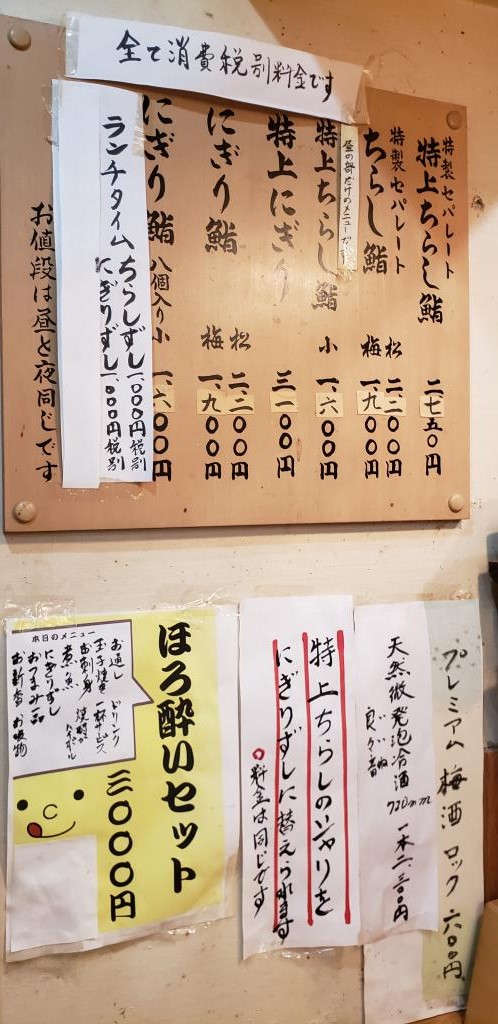 全て消費税別料金です
特製セパレート
特上ちらし鮨 二七五〇円
特製セパレート
ちらし鮨 松 二、二〇〇円
梅 一、九〇〇円
昼の部だけのメニュー
特上ちらし鮨 小 一、六〇〇円
特上にぎり 三一〇〇円
にぎり鮨 松 二、二〇〇円
梅 一、九〇〇円
にぎり鮨 八個入り 小 一、六〇〇円
ランチタイム ちらしずし 一、〇〇〇円 税別
にぎりずし 一、〇〇〇円 税別
お値段は昼と夜同じです
プレミアム 梅酒 ロック 六〇〇円
天然微発泡冷酒 720mm 一本二、三〇〇円
特上ちらしのシャリを
にぎりずしに替えられます
料金は同じです
ほろ酔いセット
三〇〇〇円
本日のメニュー
お通し ドリンク
玉子焼き 一杯サービス
お刺身
煮魚
にぎりずし
おつまみ一品
お新香 お吸物